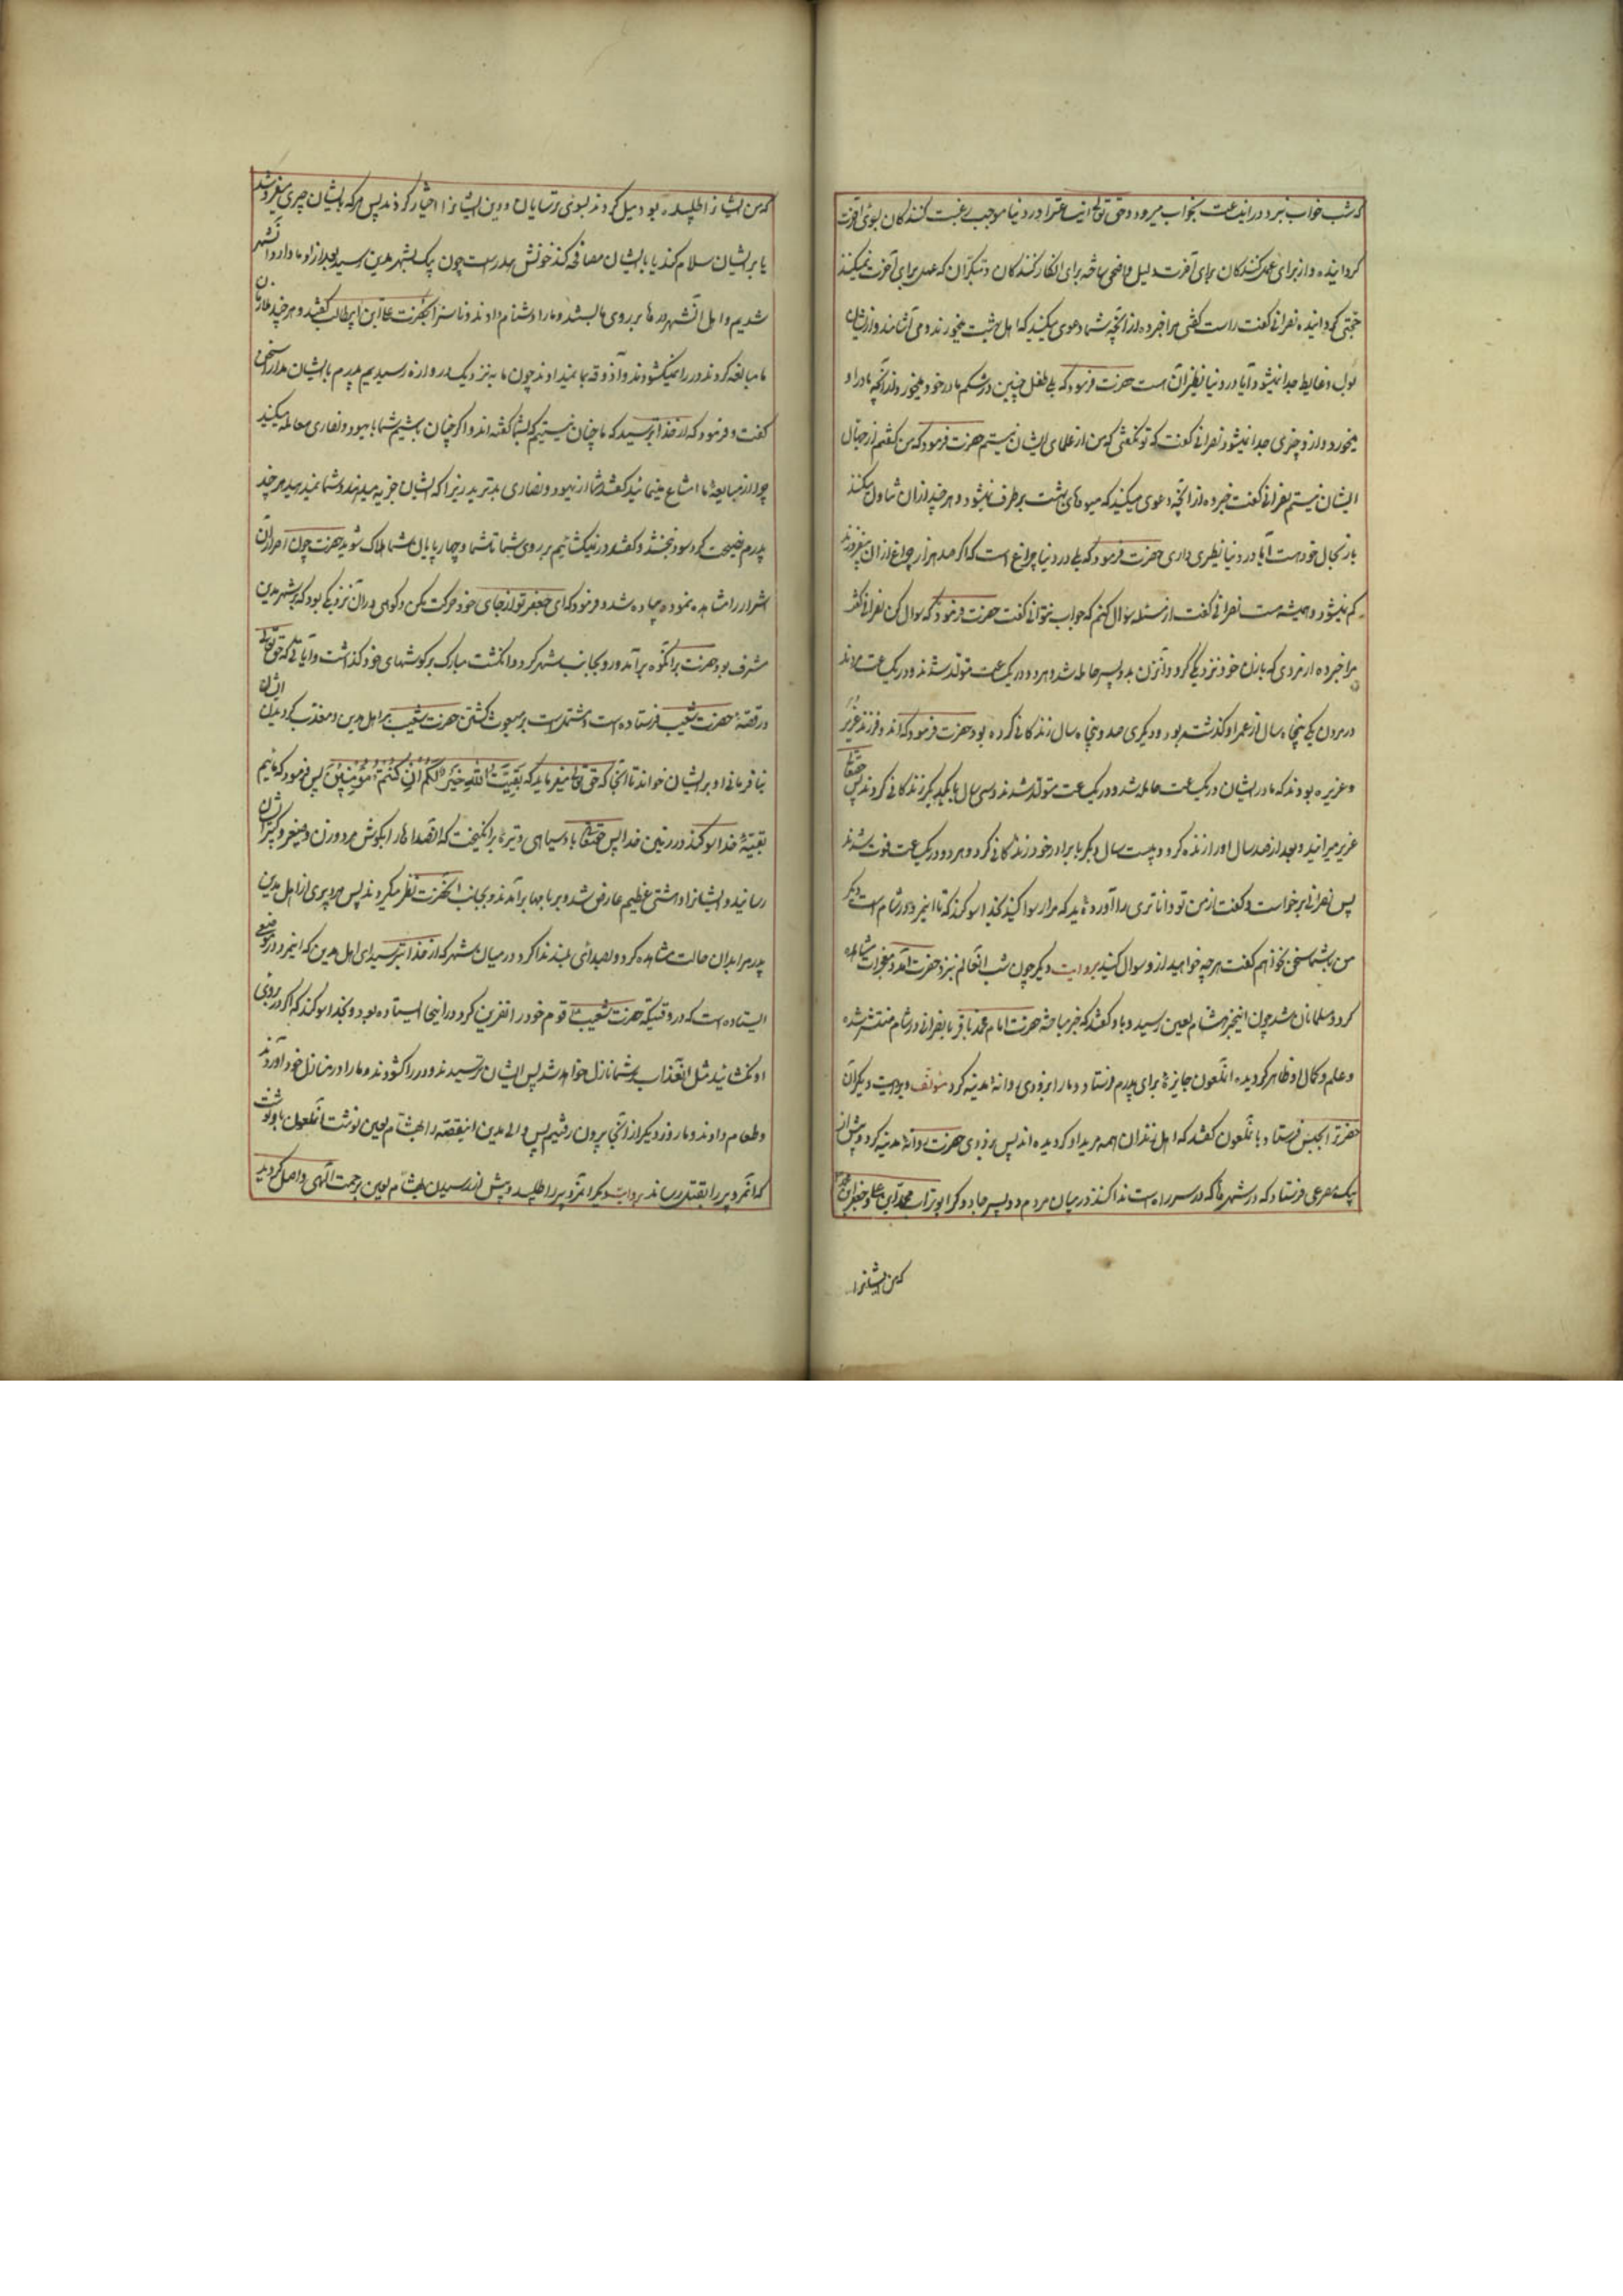 که شب خواب نبرد در این ساعت بخواب میرود و حق تعالی این ساعترا در دنیا موجب رغبت کنندگان بسوی آخرت
گردانیده و از برای عمل کنندگان برای آخرت دلیل واضحی ساخته برای انکار کنندگان و متکبران که عمل برای آخرت نمیکنند
حجتی گردانیده نصرانی گفت راست گفتی مرا خبر ده از آنچه شما دعوی میکنید که اهل بهشت میخورند و می آشامند و از ایشان
بول و غایط جدا نمیشود آیا در دنیا نظیر آن هست حضرت فرمود که بلی طفل جنین در شکم مادر خود میخورد از آنچه مادر او
میخورد و از او چیزی جدا نمیشود نصرانی گفت که تو نگفتی که من از علمای ایشان نیستم حضرت فرمود که من گفتم از جهال
ایشان نیستم نصرانی گفت خبر ده از آنچه دعوی میکنید که میوه های بهشت برطرف نمیشود و هر چند از آن تناول میکنند
باز بحال خود هست آیا در دنیا نظیری داری حضرت فرمود که بلی در دنیا چراغ است که اگر صد هزار چراغ از آن بیفروزند
کم نمیشود و همیشه هست نصرانی گفت از مسئله سوال کنم که جواب نتوانی گفت حضرت فرمود که سوال کن نصرانی گفت
مرا خبر ده از مردی که با زن خود نزدیکی کرد و آنزن بدو پسر حامله شد و هر دو در یک ساعت متولد شدند و در یک ساعت مردند
در مردن یکی پنجاه سال از عمر او گذشته بود و دیگری صد و پنجاه سال زندگانی کرده بود حضرت فرمود که آن دو فرزند عزیز
و عزیره بودند که مادر ایشان در یک ساعت حامله شد و در یک ساعت متولد شدند و سی سال با یکدیگر زندگانی کردند پس حقتعالی
عزیر میرانید و بعد از صد سال او را زنده کرد و بیست سال دیگر با برادر خود زندگانی کرد و هر دو در یک ساعت فوت شدند
پس نصرانی برخواست و گفت از من تو داناتری را آورده اید که مرا رسوا کنید بخدا سوگند که تا اینمرد در شام است دیگر
من با شما سخن نخواهم گفت هر چه خواهید از او سوال کنید بروایت دیگر چون شب شد آنعالم نزد حضرت آمد و معجزات مشاهده
کرد و مسلمان شد چون اینخبر بهشام لعین رسید و باو گفتند که خبر مباحثه حضرت امام محمد باقر با نصرانی در شام منتشر شده
و علم و کمال او ظاهر گردیده انملعون جایزۀ برای پدرم فرستاد و ما را بزودی روانه مدینه کرد مؤلف و بروایت دیگر آن
حضرترا بحبس فرستاد و بانملعون گفتند که اهل زندان همه مرید او گردیده اند پس بزودی حضرت روانۀ مدینه کرد و پیش از آن
پیک مسرعی فرستاد که در شهرها که در سر راه است ندا کنند در میان مردم که دو پسر جادوگر ابوتراب محمد ابن علی و جعفر ابن محمد
که من ایشانرا
که من ایشانرا طلبیده بودم میل کردند بسوی ترسایان و دین ایشانرا اختیار کردند پس هر که بایشان چیزی بفروشد
یا بر ایشان سلام کند یا بایشان مصافحه کند خونش هدر است چون پیک بشهر مدین رسید بعد از او ما وارد آنشهر
شدیم و اهل آنشهر درها بر روی ما بستند و ما را دشنام دادند و ناسزا بحضرت علی ابن ابیطالب گفتند و هر چند ملازمان
ما مبالغه کردند در را نمیگشودند و آذوقه بما نمیدادند چون ما بنزدیک دروازه رسیدیم پدرم بایشان مدارا سخن
گفت و فرمود که از خدا بترسید که ما چنان نیستیم که بشما گفته اند و اگر چنان باشیم شما با یهود و نصاری معامله میکنید
چرا از مبایعۀ ما امتناع مینمائید گفتند شما از یهود و نصاری بدترید زیرا که ایشان جزیه میدهند و شما نمیدهید هر چند
پدرم نصیحت کرد سود نبخشد و گفتند در نمیگشائیم بر روی شما تا شما و چهارپایان شما هلاک شوید حضرت چون اصرار آن
اشرار را مشاهده نموده پیاده شد و فرمود که ای جعفر تو از جای خود حرکت مکن و کوهی در آن نزدیکی بود که بر شهر مدین
مشرف بود حضرت بر آنکوه برآمد و رو بجانب شهر کرد و انگشت مبارک بر گوشهای خود گذاشت و آیاتی که حق تعالی
در قصۀ حضرت شعیب فرستاده است و مشتمل است بر مبعوث گشتن حضرت شعیب بر اهل مدین و معذب گردیدن ایشان
بنا فرمانی او بر ایشان خواند تا آنجا که حق تعالی میفرماید که بَقِیَّتُ اللهِ خَیْرٌ لَکُمْ اِنْ کُنْتُمْ مُؤْمِنِینَ پس فرمود که مائیم
بقیۀ خدا سوگند در زمین خدا پس حقتعالی باد سیاهی و تیرۀ برانگیخت که آنصدا ها را بگوش مرد و زن و صغیر و کبیر ایشان
رسانید و ایشانرا دهشتی عظیم عارض شد و بر بامها برآمدند و بجانب آنحضرت نظر میکردند پس مرد پیری از اهل مدین
پدرم را بدان حالت مشاهده کرد و بصدای بلند ندا کرد در میان شهر که از خدا بترسید ای اهل مدین که اینمرد در موضعی
ایستاده است که در وقتیکه حضرت شعیب قوم خود را نفرین کرد در اینجا ایستاده بود و بخدا سوگند که اگر در بروی
او نگشائید مثل آنعذاب بر شما نازل خواهد شد پس ایشان ترسیدند و در را گشودند و ما را در منازل خود آوردند
و طعام دادند و ما روز دیگر از آنجا بیرون رفتیم پس والی مدین اینقصه را بهشام لعین نوشت انملعون باو نوشت
که آنمرد پیر را بقتل رساند بروایت دیگر آنمرد پیر را طلبید و پیش از رسیدن بهشام لعین برحمت آلهی واصل گردید